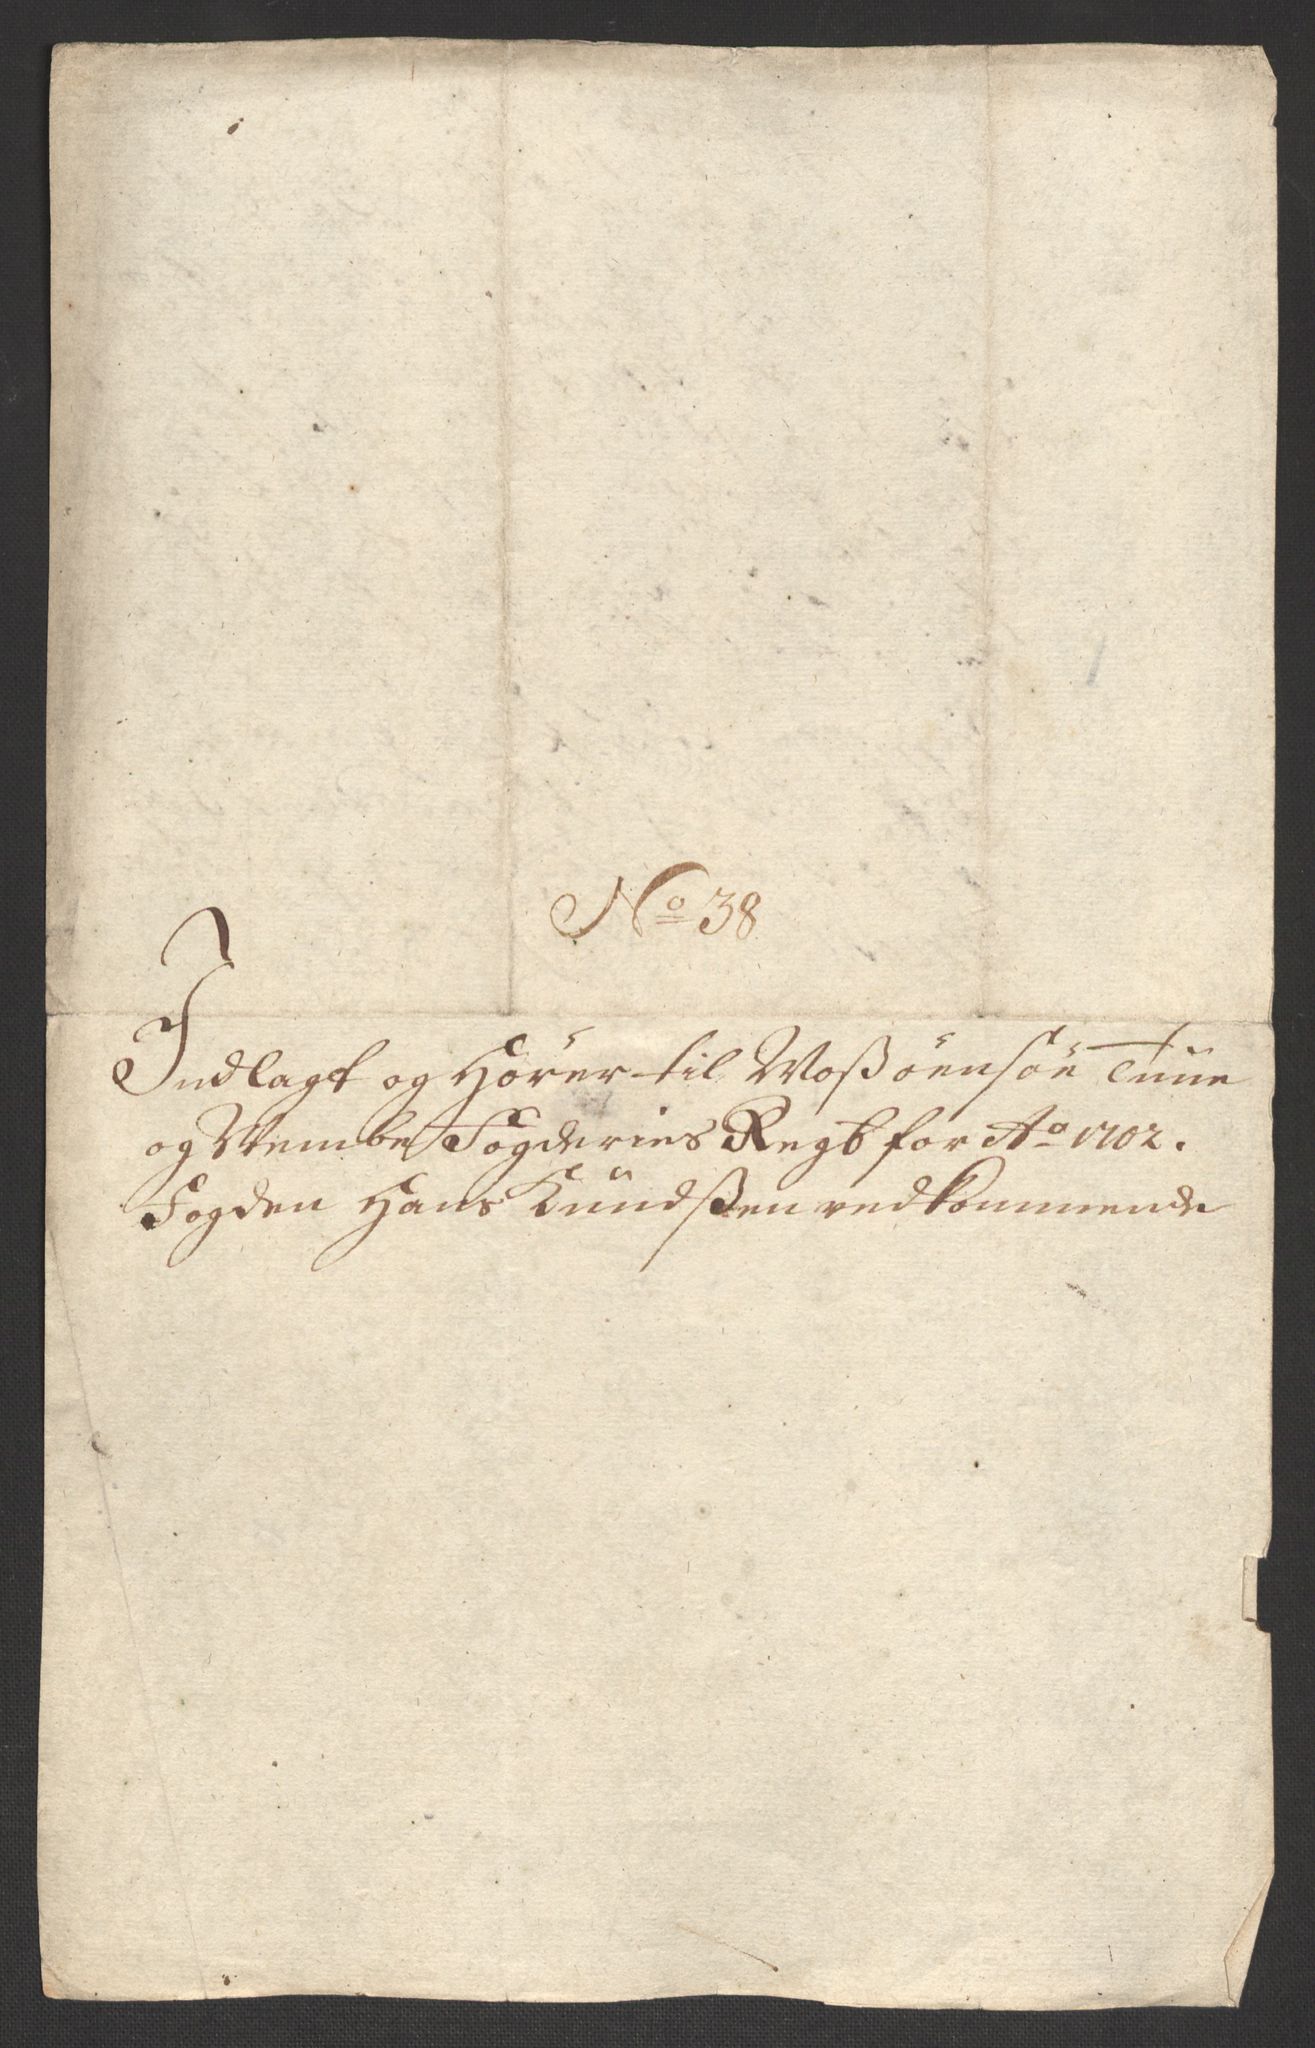 No 38
Indlagt og Hörer til Moß öensöe Tune
og Wembe Fogderies Regb for Ao 1702.
Fogden Hans Knudßen vedkommende